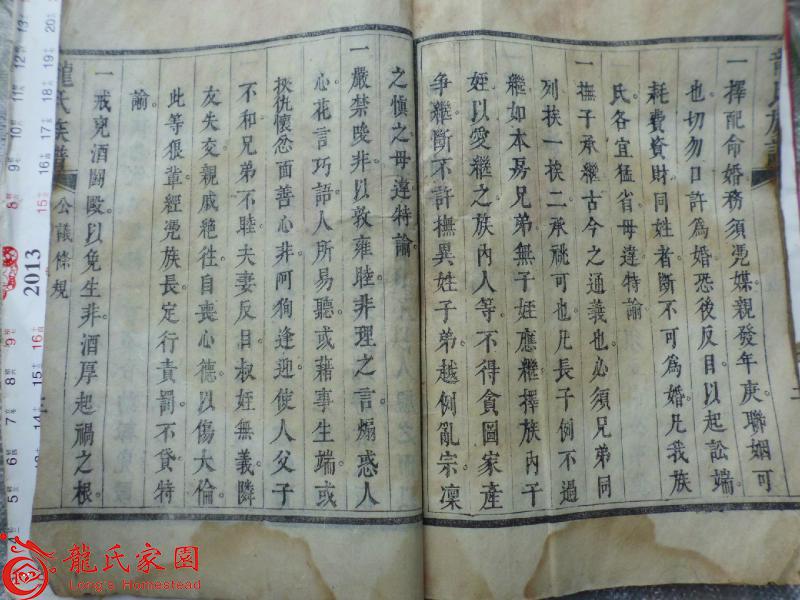 一擇配命婚務須憑媒親發年庚聯姻可
也切勿口許為婚恐後反目以起訟端
耗費資財同姓者斷不可為婚凡我族
氏各宜猛省毋違特諭
一撫子承繼古今之通義也必須兄弟同
列挨一挨二承祧可也凡長子例不過
繼如本房兄弟無子姪應繼擇族內子
姪以愛繼之族內人等不得貪圖家產
爭繼斷不許撫異姓子弟越例亂宗凜
之慎之毋違特諭
一嚴禁唆非以敦雍睦非理之言煽惑人
心花言巧語人所易聽或藉事生端或
挾仇懷忿面善心非阿狗逢迎使人父子
不和兄弟不睦夫妻反目叔姪無義隣
友失交親戚絕往自喪心德以傷大倫
此等狠輩經憑族長定行責罰不貸特
諭
一戒兇酒鬬毆以免生非酒厚起禍之根
龍氏族譜
公議條規
2013
龍氏家園
Long's Homestead